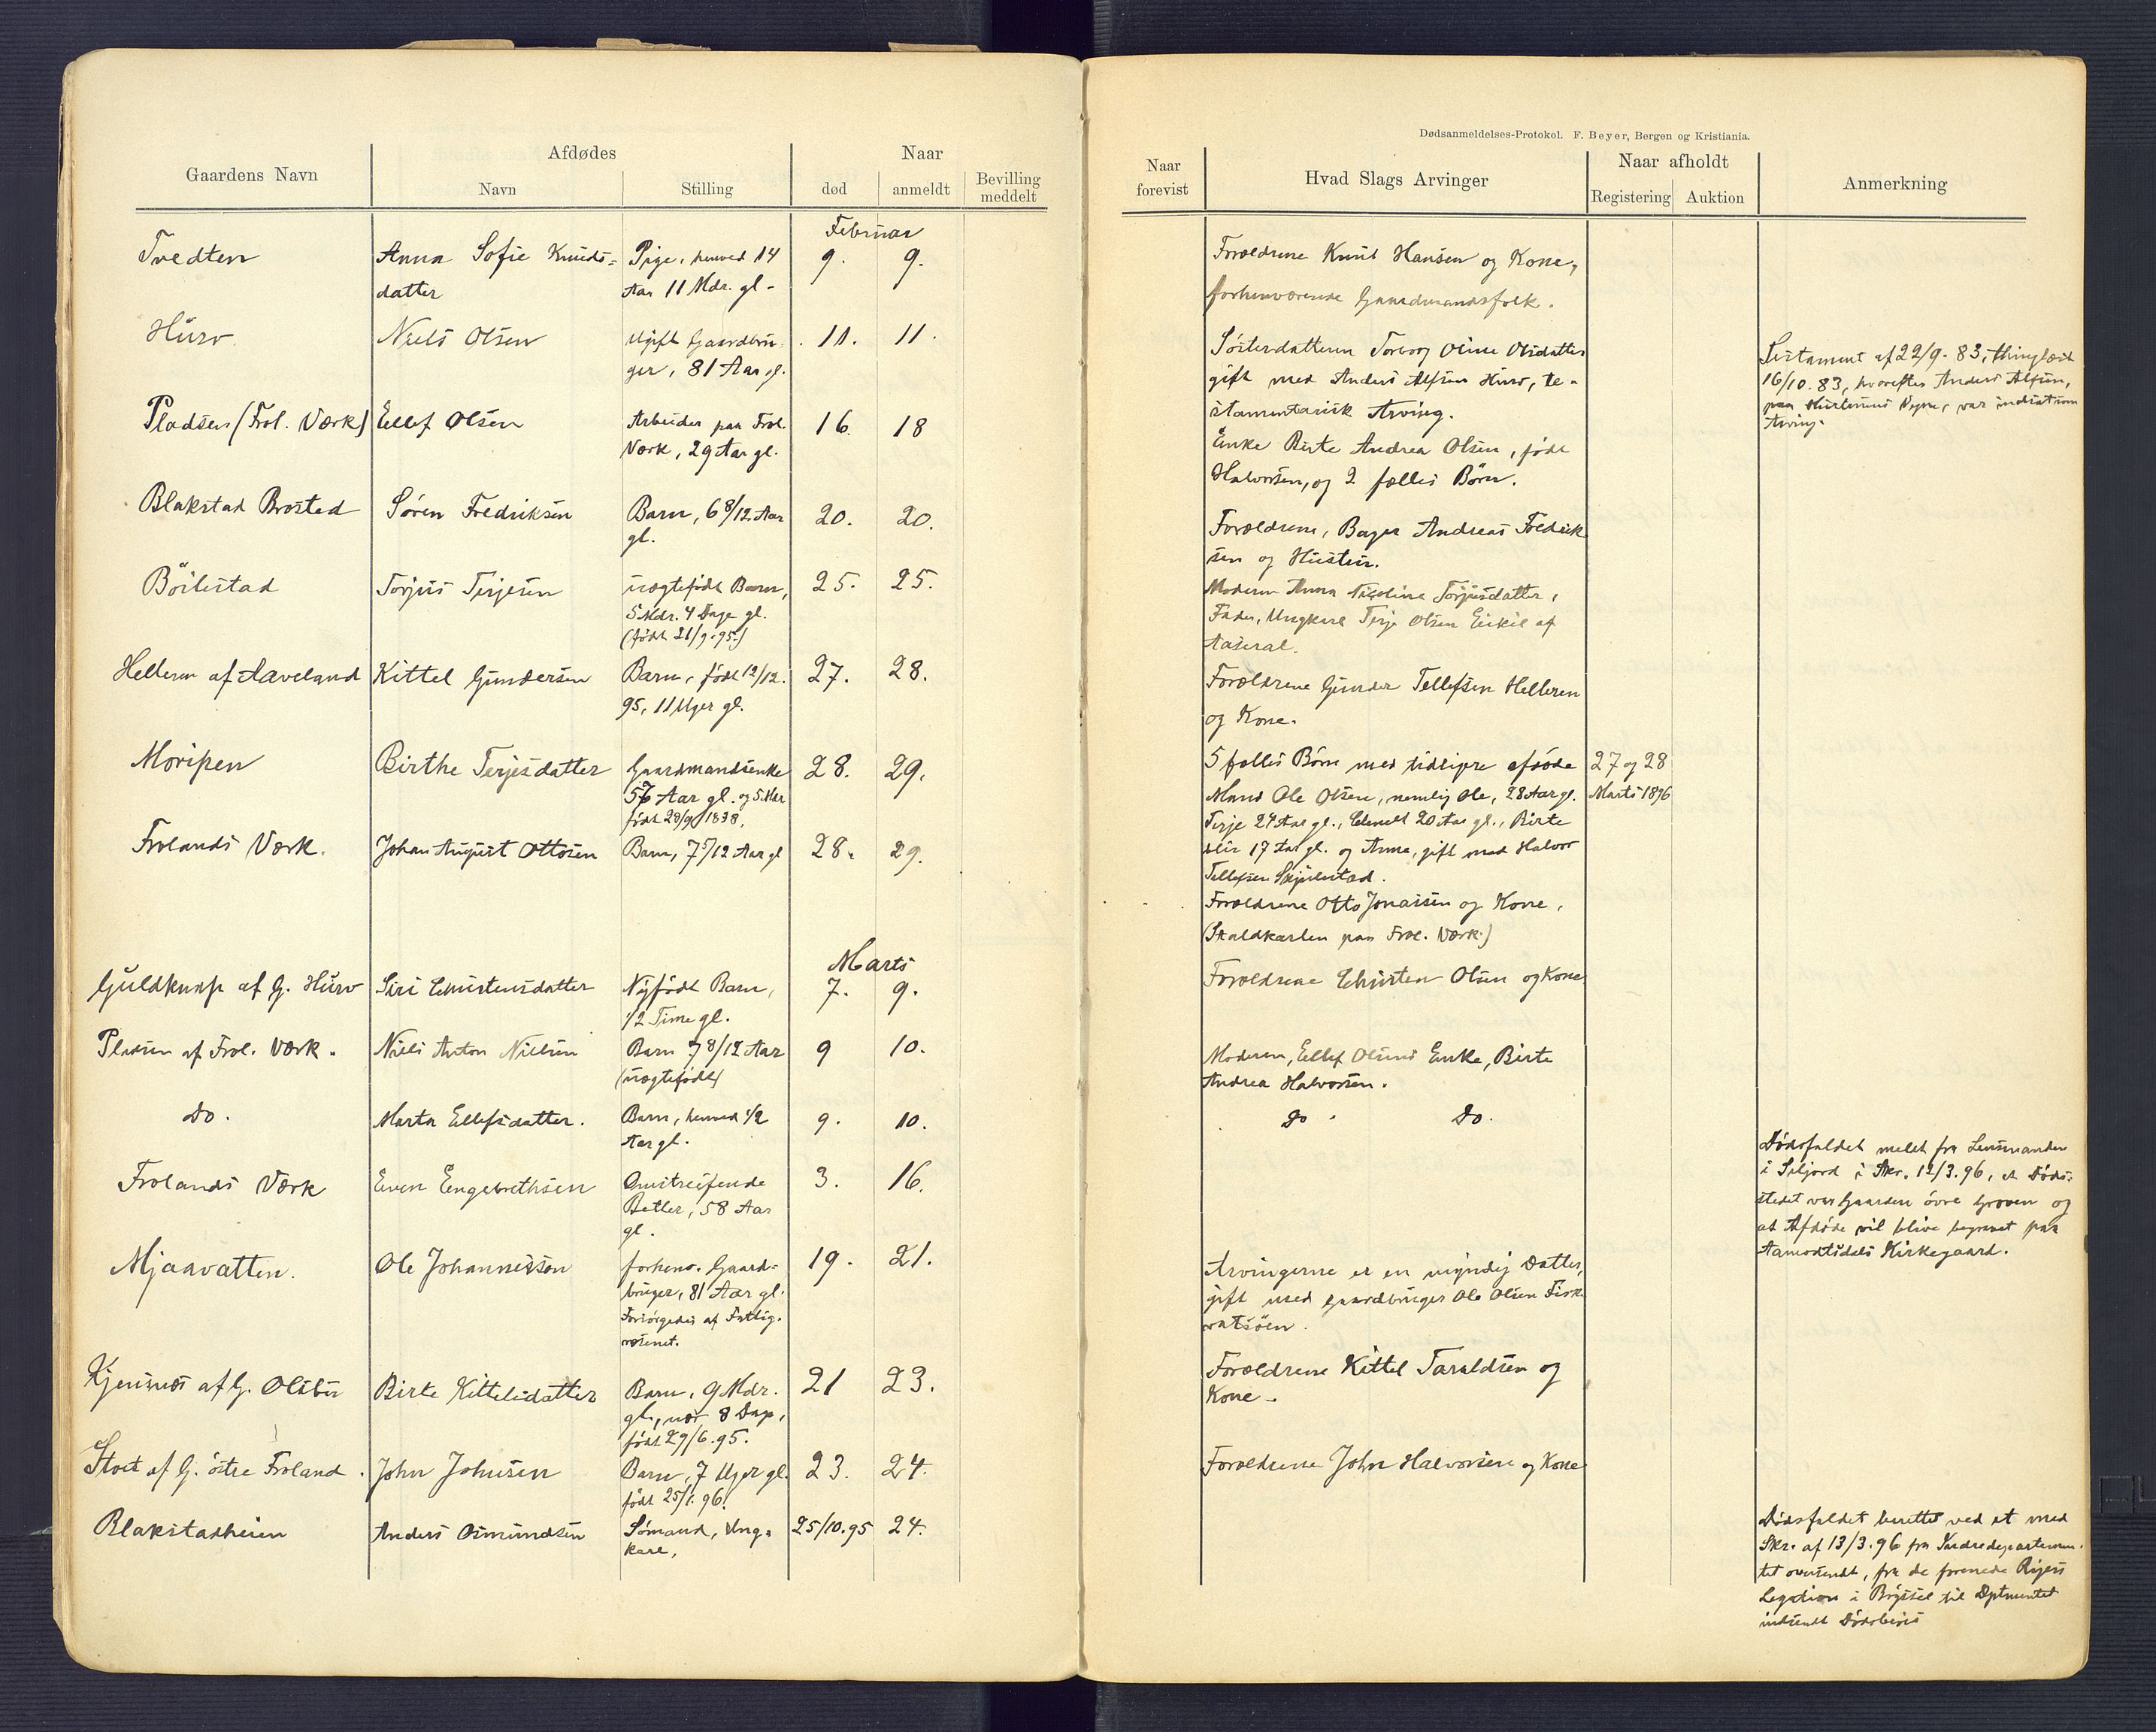 Dødsanmeldelses-Protokol. F. Beyer, Bergen og Kristiania.
Gaardens Navn
Afdødes
Navn
Stilling
Naar
død
anmeldt
Bevilling
meddelt
Naar
forevist
Hvad Slags Arvinger
Naar afholdt
Registering
Auktion
Anmerkning
Februar
Tvedten
Anna Sofie Knuds-
datter
Pige, henved 14
Aar 11 Mdr. gl.
9.
9.
Forældrene Knut Hansen og Kone,
forhenværende Gaardmandsfolk.
Hurv
Niels Olsen
Ugift Gaardbru-
ger, 81 Aar gl.
11.
11.
Søsterdatteren Torborg Oline Olsdatter
gift med Anders Alfsen Hurv, te-
stamentarisk Arving.
Testament af 22/9. 83, thinglæst
16/10. 83, hvorefter Anders Alfsen,
paa Hustruens Vegne, var indsat som
Arving.
Pladsen (Frol. Værk)
Ellef Olsen
Arbeider paa Frol.
Værk, 29 Aar gl.
16.
18
Enke Birte Andrea Olsen, født
Halvorsen, og 2 fælles Børn.
Blakstad Brosted
Søren Fredriksen
Barn, 6 8/12 Aar
gl.
20.
20.
Forældrene, Bager Andreas Fredrik
sen og Hustru.
Böilestad
Torjus Terjesen
uægtefødt Barn,
5 Mdr. 4 Dage gl.
(født 21/9. 95.)
25.
25.
Moderen Anna Nicoline Torjusdatter,
Fader, Ungkarl Terje Olsen Eikil af
Aaseral.
Helleren af Aaveland
Kittel Gundersen
Barn, født 12/12.
95, 11 Uger gl.
27.
28.
Forældrene Gunder Tellefsen Helleren
og Kone.
Moripen
Birthe Terjesdatter
Gaardmandsenke
57 Aar gl. og 5 Mdr
født 28/9 1838.
28.
29.
5 fælles Børn med tidligere afdøde
Mand Ole Olsen, nemlig Ole, 28 Aar gl.
Terje 24 Aar gl., 20 Aar gl., Birte
17 Aar gl. og Anna, gift med Halvor
Tellefsen
27 og 28
Marts 1896
Frolands Værk.
Johan August Ottosen
Barn, 7 5/12 Aar gl
28.
29.
Forældrene Otto Jonassen og Kone,
(Skaldkarlen paa Frol. Værk.)
Marts
Guldknap af G. Hurv
Siri Christensdatter
Nyfødt Barn,
1/2 Time gl.
7.
9.
Forældrene Christen Olsen og Kone
Pladsen af Frol. Værk.
Niels Anton Nielsen
Barn 7 8/12 Aar
(uægtefødt)
9
10.
Moderen, Ellef Olsens Enke, Birte
Andrea Halvorsen.
Do.
Marta Ellefsdatter.
Barn, henved 1/2
Aar gl.
9.
10.
Do
Do.
Frolands Værk
Even Engebrethsen
Omstreifende
Betler, 58 Aar
gl.
3.
16.
Dødsfaldet meldt fra Lensmanden
i Seljord i Skr. 12/3. 96, at Døds-
stedet var Gaarden övre Groven og
at Afdøde vil blive begravet paa
Aamodtsdals Kirkegaard.
Mjaavatten.
Ole Johannesson
forhenv. Gaard-
bruger, 81 Aar gl.
Forsørgedes af Fattig-
væsenet.
19.
21.
Arvingerne er en myndig Datter,
gift med Gaardbruger Ole Olsen Fisk
vatsöen.
af G. Olsbu
Birte Kittelsdatter
Barn, 9 Mdr.
gl., nær 8 Dage,
født 29/6. 95.
21
23.
Forældrene Kittel Taraldsen og
Kone.
af G. östre Froland.
John Johnsen
Barn, 7 Uger gl.
født 25/1. 96.
23.
24.
Forældrene John Halvorsen og Kone
Blakstadheien
Anders Osmundsen
Sömand, Ung-
karl,
25/10.95
24.
Dødsfaldet berettet ved et med
Skr. af 13/3. 96 fra Indredepartemen-
tet oversendt, fra de forenede Rigers
Legation i Brüssel til Dptmentet
indsendt Dødsbevis